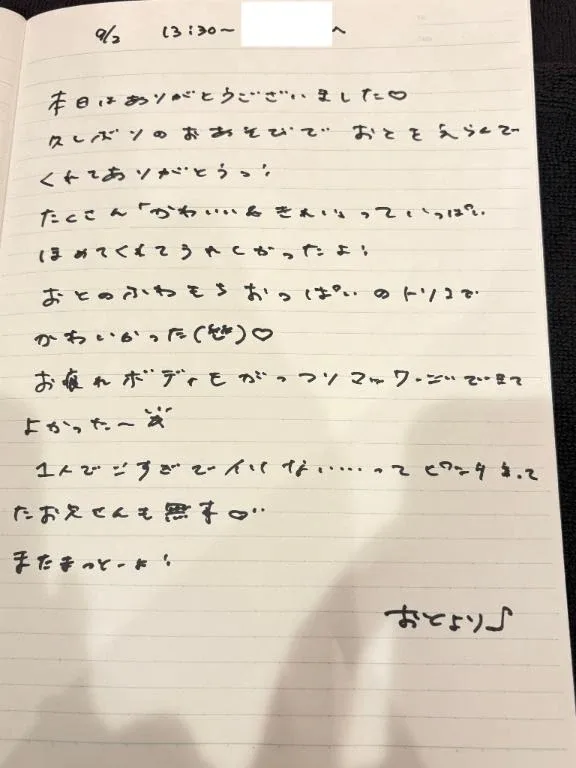 9/2 13:30〜 へ
本日はありがとうございました♡
久しぶりのおあそびで おとをえらんで
くれてありがとうっ!
たくさん「かわいい&きれい」っていっぱい
ほめてくれてうれしかったよ!
おとのふわもちおっぱいのトリコで
かわいかった(笑)♡
お疲れボディもがっつりマッサージできて
よかった〜
1人でごすぎてイけない……って
たお兄さんも無事♡
またまっとーよ!
おとより♪